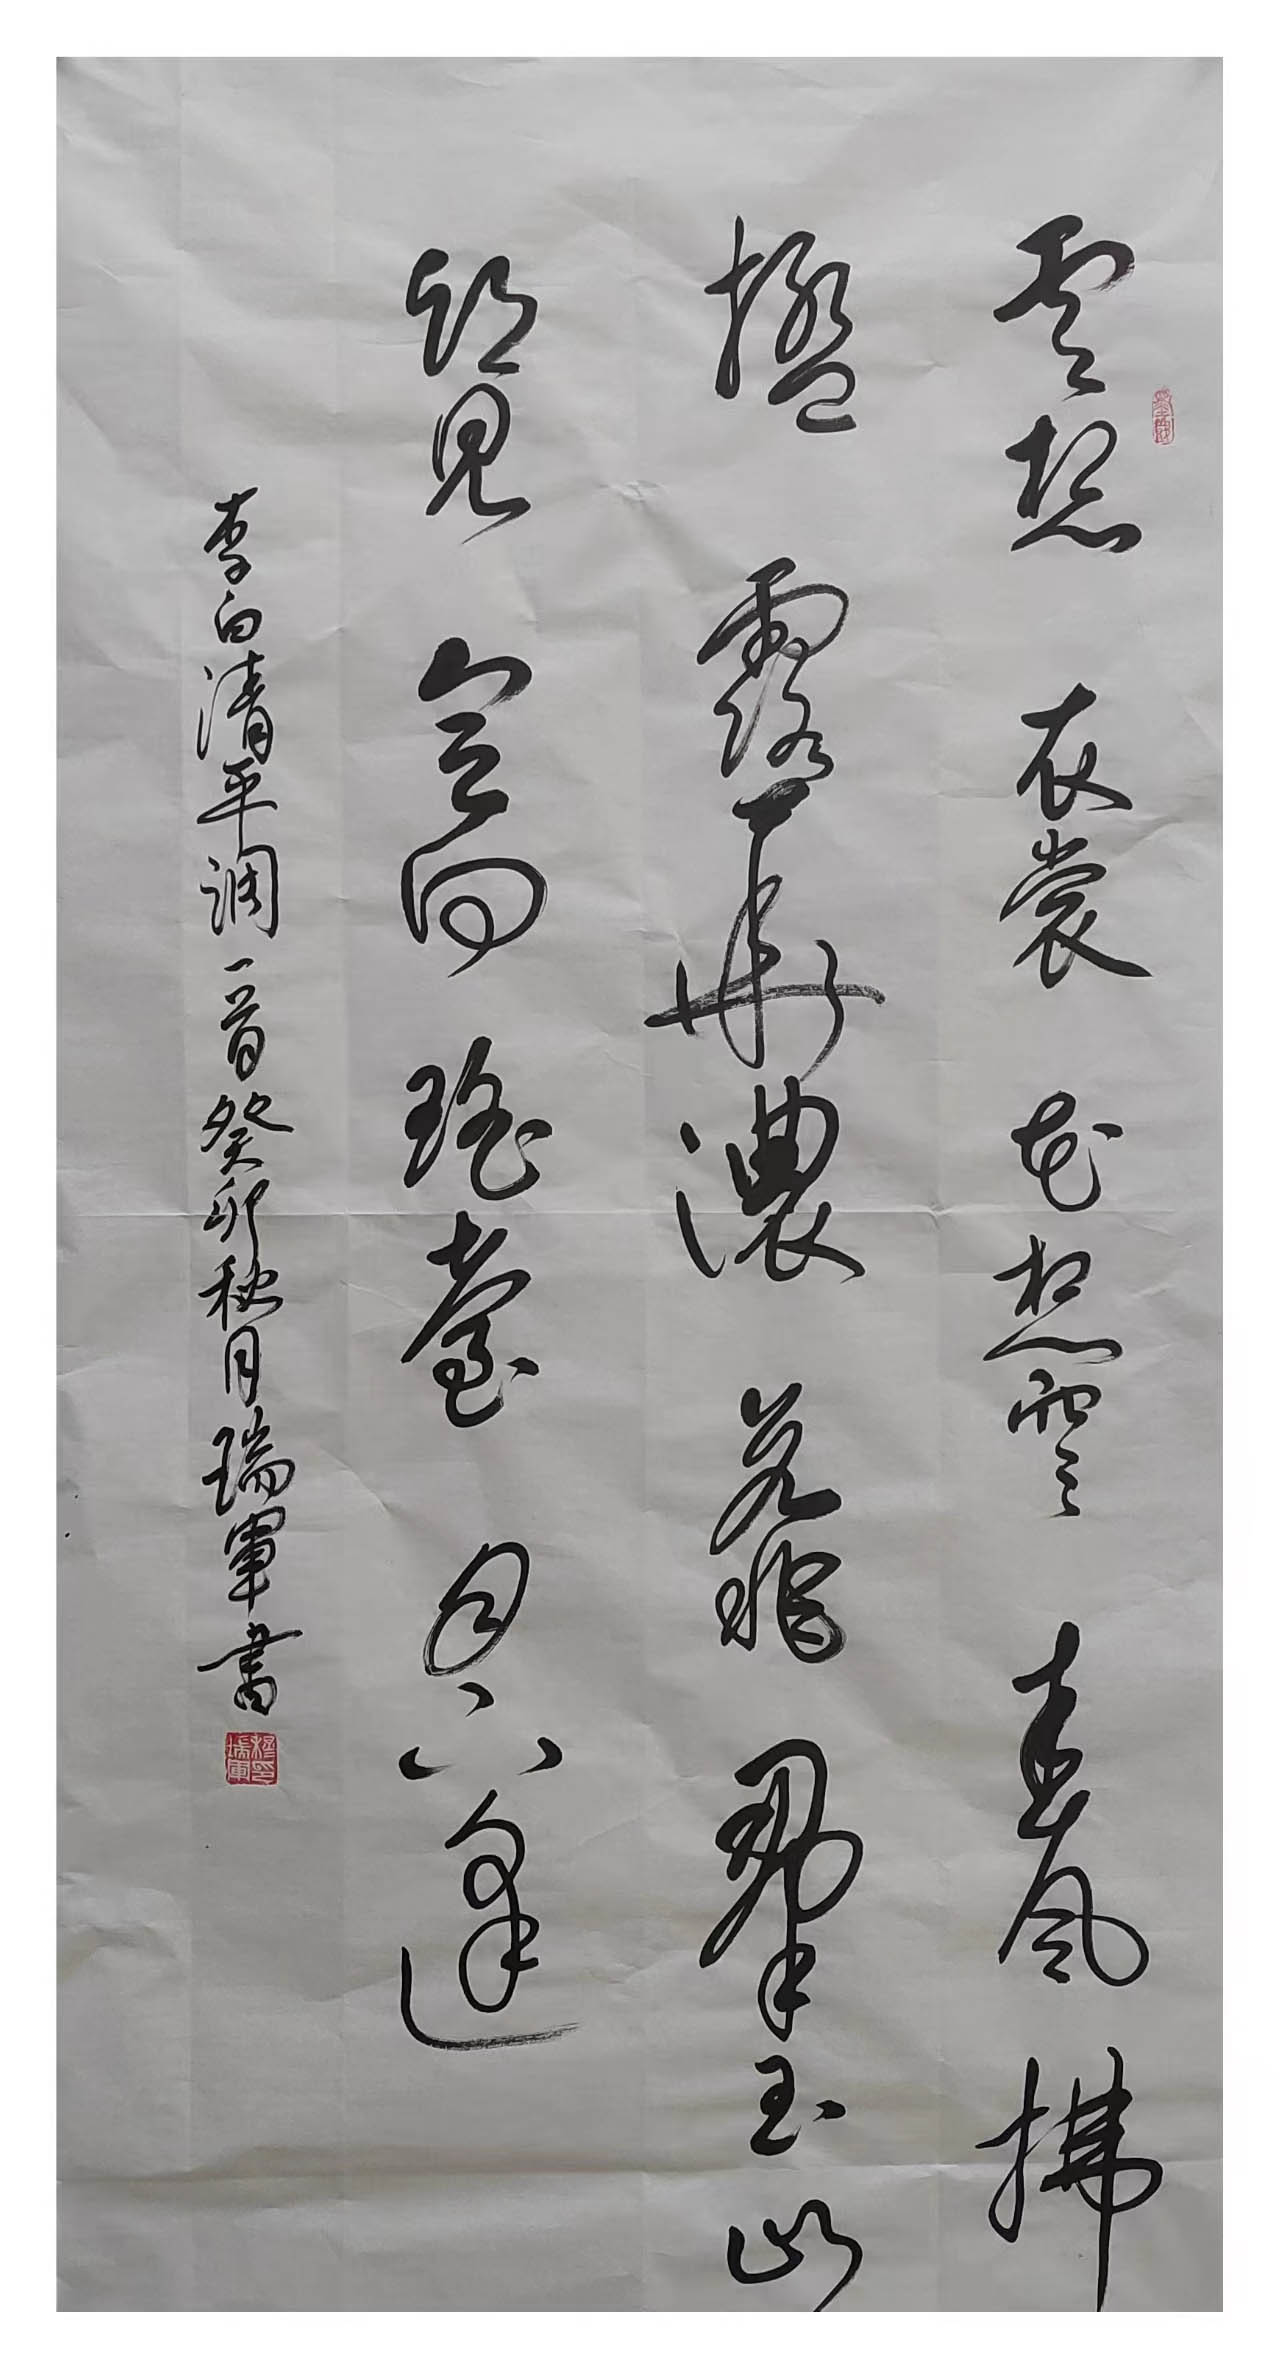 雲想衣裳花想容春風拂
檻露華濃若非羣玉山
頭見會向瑤臺月下逢
李白清平调一首癸卯秋月瑞軍書